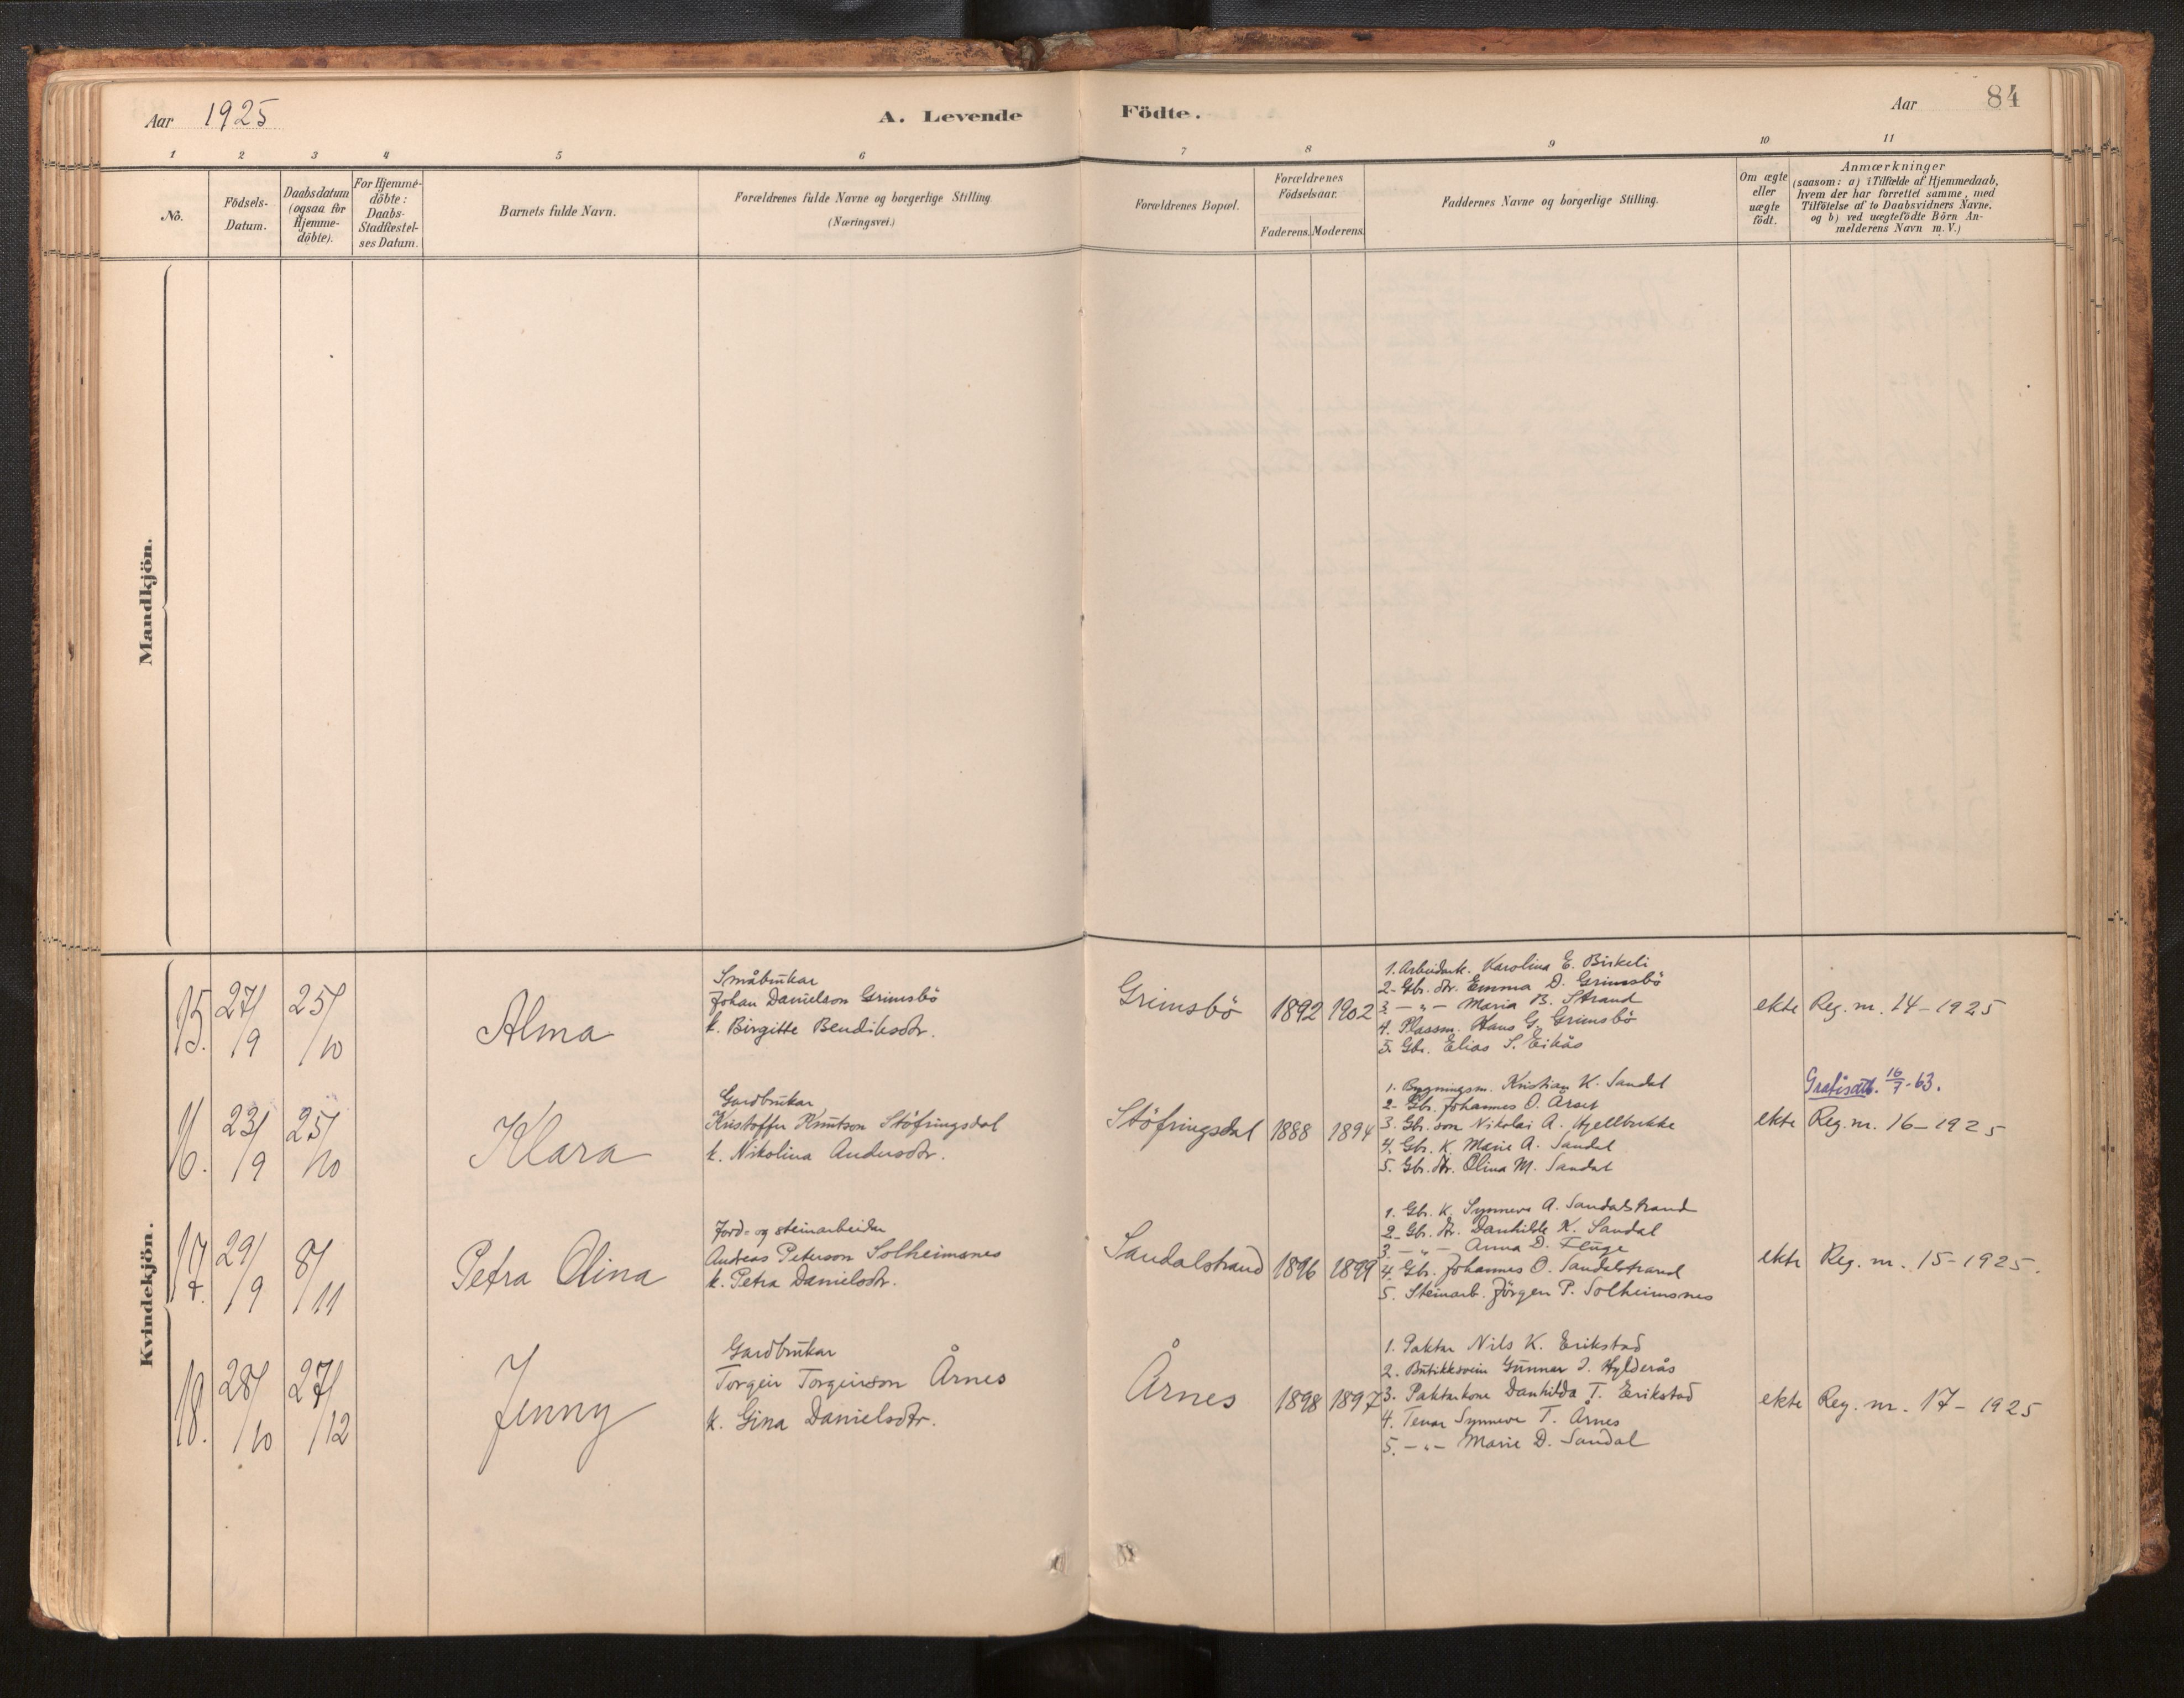 Aar 1925
A. Levende Födte.
Aar 84
1 2 3 4 5 6 7 8 9 10 11
No.
Födsels-
Datum.
Daabsdatum
(ogsaa for
Hjemme-
döbte).
For Hjemme-
döbte:
Daabs-
Stadfæstel-
ses Datum.
Barnets fulde Navn.
Forældrenes fulde Navne og borgerlige Stilling
(Næringsvei.)
Forældrenes Bopæl.
Forældrenes
Födselsaar.
Faderens. Moderens.
Faddernes Navne og borgerlige Stilling.
Om ægte
eller
uægte
födt.
Anmærkninger
(saasom: a) i Tilfælde af Hjemmedaab,
hvem der har forrettet samme, med
Tilföielse af to Daabsvidners Navne,
og b) ved uægtefödte Börn An-
melderens Navn m.V.)
Mandkjön.
Kvindekjön.
15. 27/9 25/10
Alma
Småbrukar
Johan Danielson Grimsbö
k. Birgitte Bendiksdtr.
Grimsbö 1892 1902
1. Arbeidark. Karolina E. Birkeli
2. Gbr. dtr. Emma D. Grimsbö
3. — " — Maria B. Strand
4. Plassm. Hans G. Grimsbö
5. Gbr. Elias S. Eikås
ekte Reg. nr. 14 - 1925
16. 23/9 25/10
Klara
Gardbrukar
Kristoffer Knutson Stöfringsdal
k. Nikolina Andersdtr.
Stöfringsdal 1888 1894
1. Bygningsm. Kristian K. Sandal
2. Gbr. Johannes O. Årset
3. Gbr. son Nikolai A. Hjellbrekke
4. Gbr. K. Marie A. Sandal
5. Gbr. dtr. Olina M. Sandal
Gratisatt. 16/7-63.
ekte Reg. nr. 16 - 1925
17. 29/9 8/11
Petra Olina
Jord- og steinarbeider
Andreas Peterson Solheimsnes
k. Petra Danielsdtr.
Sandalstrand 1896 1899
1. Gbr. K. Synneva A. Sandalstrand
2. Gbr. dtr. Danhilde K. Sandal
3. — " — Anna D. Fluge
4. Gbr. Johannes O. Sandalstrand
5. Steinarb. Jörgen P. Solheimsnes
ekte Reg. nr. 15 - 1925.
18. 28/10 27/12
Jenny
Gardbrukar
Torgeir Torgeirson Årnes
k. Gina Danielsdtr.
Årnes 1898 1897
1. Paktar Nils K. Erikstad
2. Butikksvein Gunnar J. Hylderås
3. Paktarkone Danhilda T. Erikstad
4. Tenar Synneve T. Årnes
5. — " — Marie D. Sandal
ekte Reg. nr. 17 - 1925